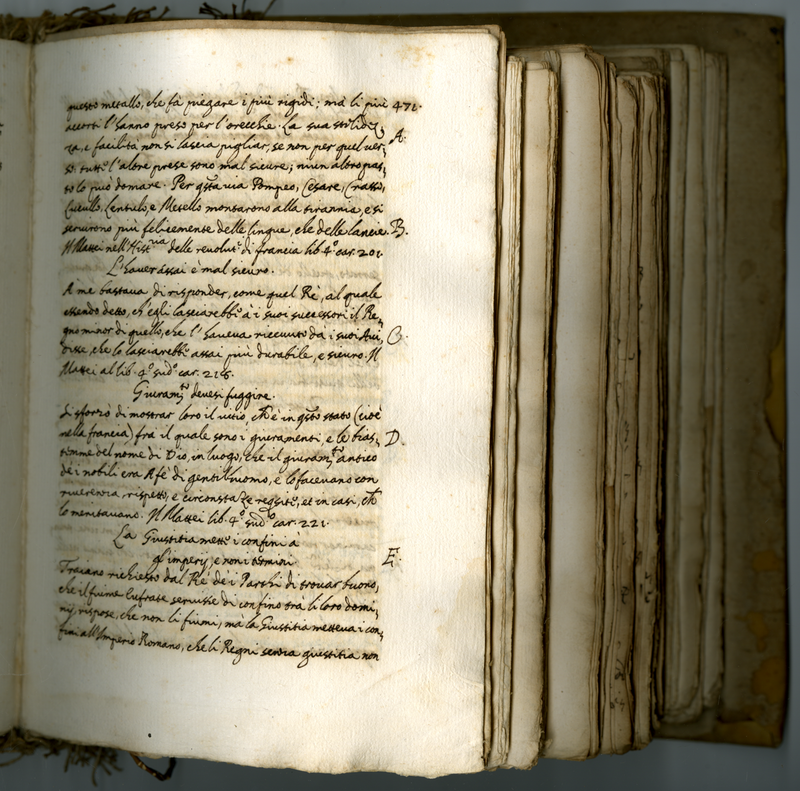 questo metallo, che fà piegare i più rigidi; mà li più 471.
accorti l'hanno preso per l'orecchie. La sua stolidez,
za, e facilità non si lascia pigliar, se non per quel ver, A.
so. tutte l'altre prese sono mal sicure; niun altro pas,
to lo può domare. Per qsta via Pompeo, Cesare, Crasso,
Lucullo, Lentulo, e Metello montarono alla tirannia, e si
servirono più felicemente delle lingue, che delle lancie. B.
Il Mattei nell'Histria delle revolut. di francia lib. 4.º car. 201.
L'haver assai è mal sicuro.
A me bastava di risponder, come quel Rè, al quale
essendo detto, ch'egli lasciarebbe à i suoi successori il Re,
gno minor di quello, che l'haveva riceuuto dà i suoi Avi, C.
disse, che lo lasciarebbe assai più durabile, e sicuro. Il
Mattei al lib. 4.º sudº car. 218.
Giuramto devesi fuggire.
si sforzò di mostrar loro il vitio, ch è in qsto stato (cioè
nella francia) frà il quale sono i giuramenti, e le bias, D.
temme del nome di Dio, in luogo, che il giuramto antico
dei nobili era A fè di gentilhuomo, e lo facevano con
riverenza, rispetto, e circonstaze reqsite, et in casi, ch
lo meritavano. Il Mattei lib. 4.º sudº car. 221.
La Giustitia mette i confini à
gl'imperij, e non i termini E.
Traiano richiesto dal Rè dei Parthi di trovar buono,
che il fiume Eufrate servisse di confino trà li loro domi,
nij, rispose, che non li fiumi, mà la Giustitia metteva i con,
fini all'Imperio Romano, che li Regni senza giustitia non